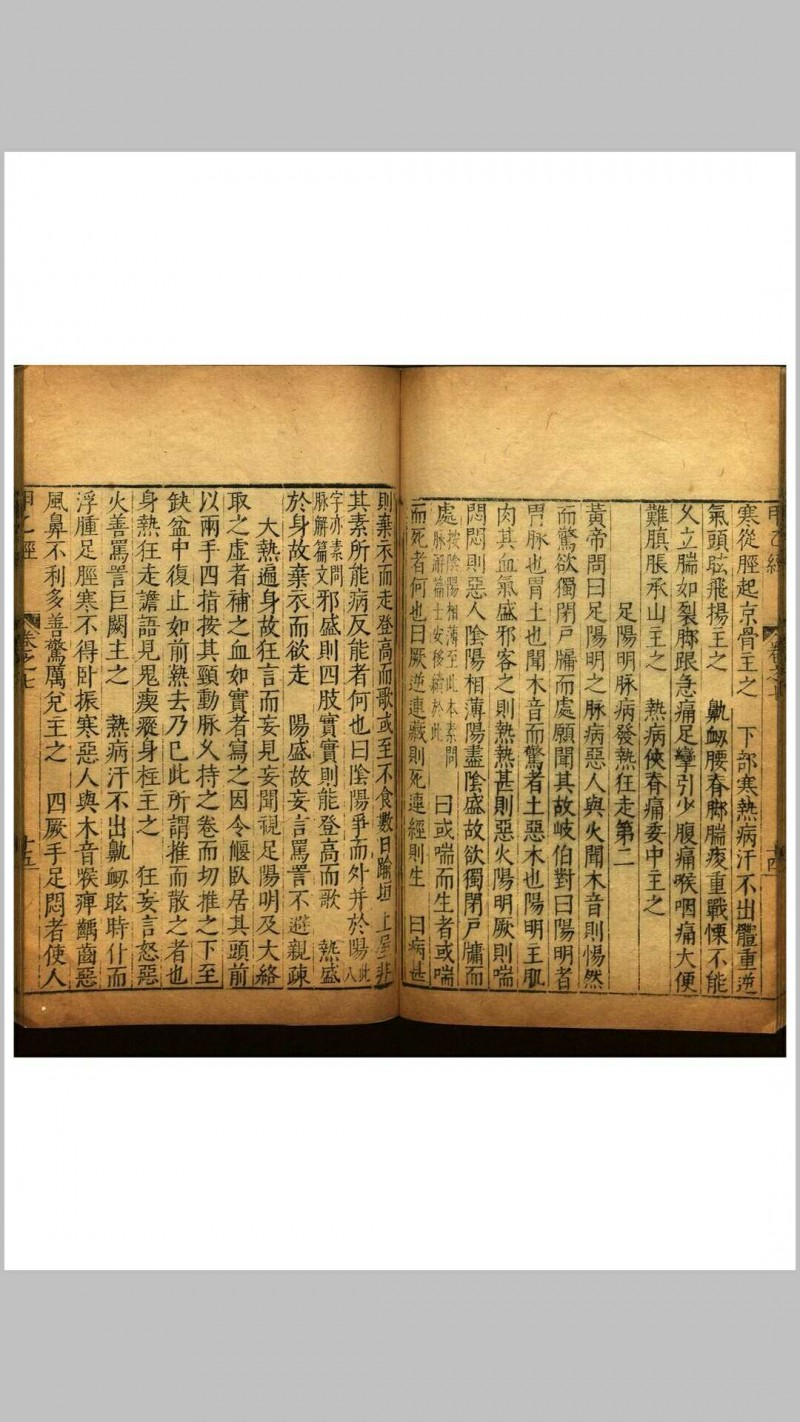 寒從脛起京骨主之　下部寒熱病汗不出體重逆
氣頭眩飛揚主之　鼽衂腰脊腳腨痠重戰慄不能
乆立腨如裂腳跟急痛足攣引少腹痛喉咽痛大便
難䐜脹承山主之　熱病俠脊痛委中主之
足陽明脉病發熱狂走第二
黃帝問曰足陽明之脉病惡人與火聞木音則惕然
而驚欲獨閉戸牖而處願聞其故岐伯對曰陽明者
胃脉也胃土也聞木音而驚者土惡木也陽明主肌
肉其血氣盛邪客之則熱熱甚則惡火陽明厥則喘
悶悶則惡人陰陽相薄陽盡陰盛故欲獨閉戸牖而
處按陰陽相薄至此本素問脉解篇士安移續於此　曰或喘而生者或喘
而死者何也曰厥逆連藏則死連經則生　曰病甚
則棄衣而走登高而歌或至不食數日踰垣上屋非
其素所能病反能者何也曰陰陽爭而外并於陽此八
字亦素問脉解篇文邪盛則四肢實實則能登高而歌　熱盛
於身故棄衣而欲走　陽盛故妄言罵詈不避親疎
大熱遍身故狂言而妄見妄聞視足陽明及大絡
取之虛者補之血如實者寫之因令偃臥居其頭前
以兩手四指按其頸動脉乆持之卷而切推之下至
缺盆中復止如前熱去乃已此所謂推而散之者也
身熱狂走譫語見鬼瘈瘲身柱主之　狂妄言怒惡
火善罵詈巨闕主之　熱病汗不出鼽衂眩時仆而
浮腫足脛寒不得卧振寒惡人與木音喉痹齲齒惡
風鼻不利多善驚厲兌主之　四厥手足悶者使人
甲乙經　卷之七　十五